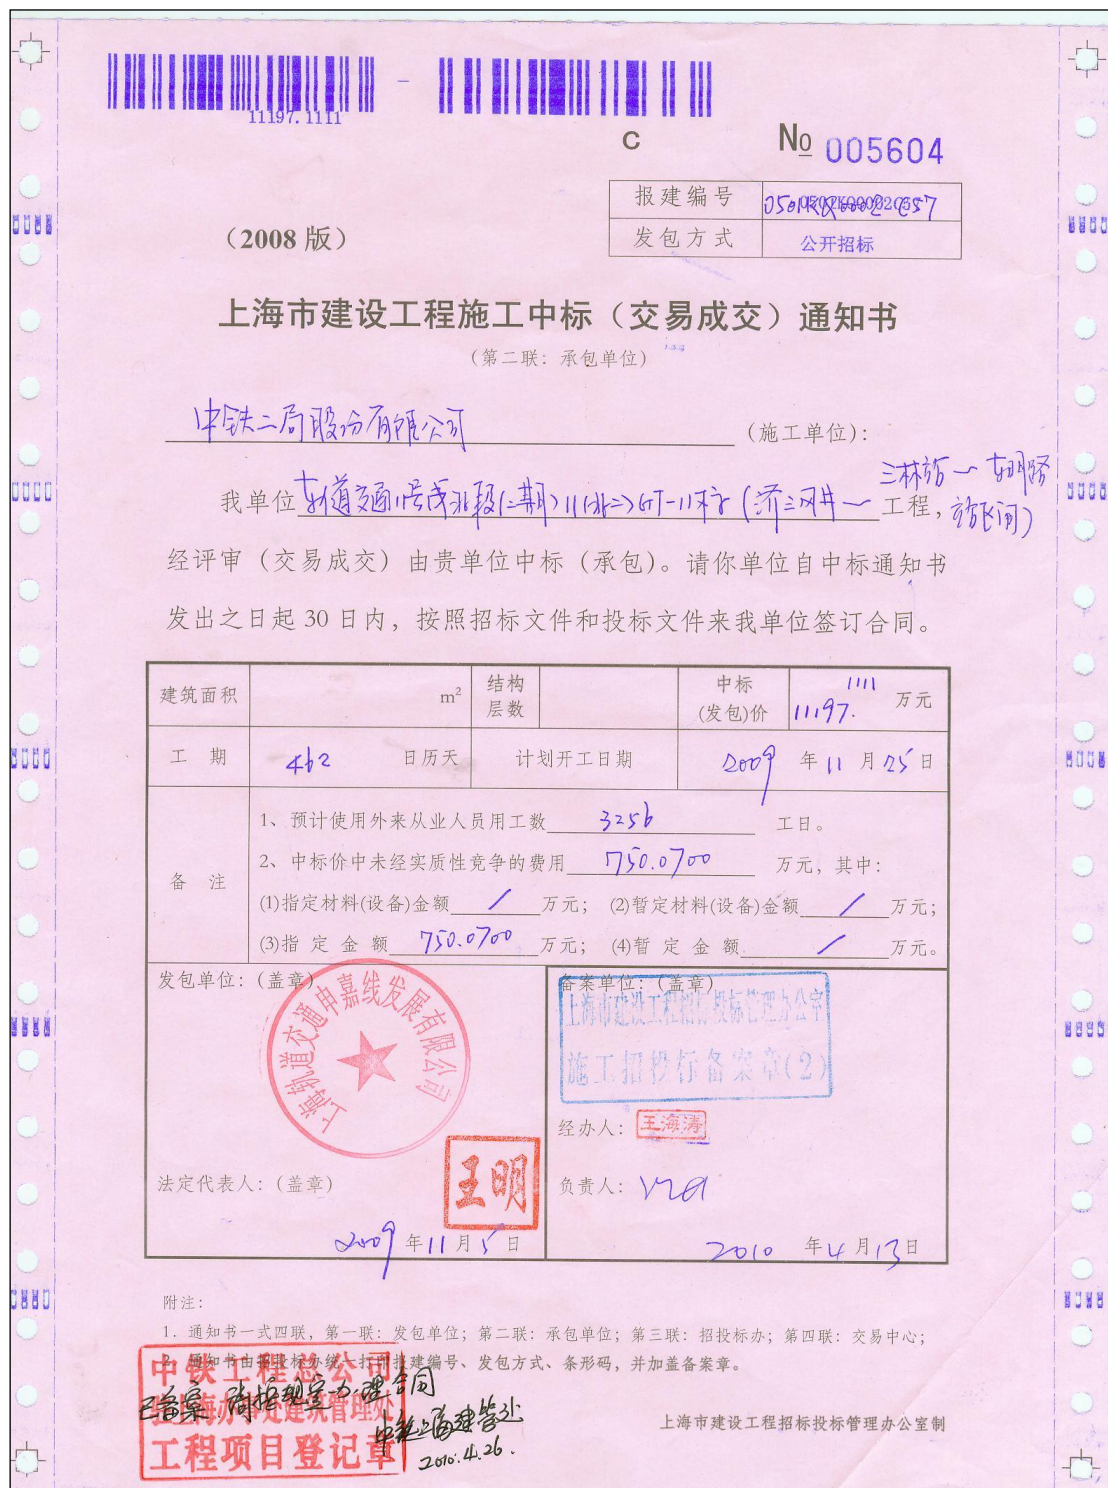 11197.1111
C
№ 005604
报建编号
发包方式 公开招标
（2008 版）
上海市建设工程施工中标（交易成交）通知书
（第二联：承包单位）
中铁二局股份有限公司 （施工单位）：
三林站~东明路
我单位 轨道交通11号线北段(二期)11(北二) 11标 (济三风井~ 工程， 站区间)
经评审（交易成交）由贵单位中标（承包）。请你单位自中标通知书
发出之日起 30 日内，按照招标文件和投标文件来我单位签订合同。
建筑面积 m² 结构层数 中标(发包)价 11197.1111 万元
工 期 462 日历天 计划开工日期 2009 年 11 月 25 日
备 注
1、预计使用外来从业人员用工数 3256 工日。
2、中标价中未经实质性竞争的费用 750.0700 万元，其中：
(1)指定材料(设备)金额 / 万元； (2)暂定材料(设备)金额 / 万元；
(3)指 定 金 额 750.0700 万元； (4)暂 定 金 额 / 万元。
发包单位：（盖章）
上海轨道交通申嘉线发展有限公司
法定代表人：（盖章）
王明
2009 年 11 月 5 日
备案单位：（盖章）
上海市建设工程招标投标管理办公室
施工招投标备案章(2)
经办人： 王海涛
负责人：
2010 年 4 月 13 日
附注：
1. 通知书一式四联，第一联：发包单位；第二联：承包单位；第三联：招投标办；第四联：交易中心；
2. 通知书由招投标办统一打印报建编号、发包方式、条形码，并加盖备案章。
中铁工程总公司
驻上海办事处建筑管理处
工程项目登记章
已备案，请按规定办理合同
中铁上海建管处
2010.4.26.
上海市建设工程招标投标管理办公室制